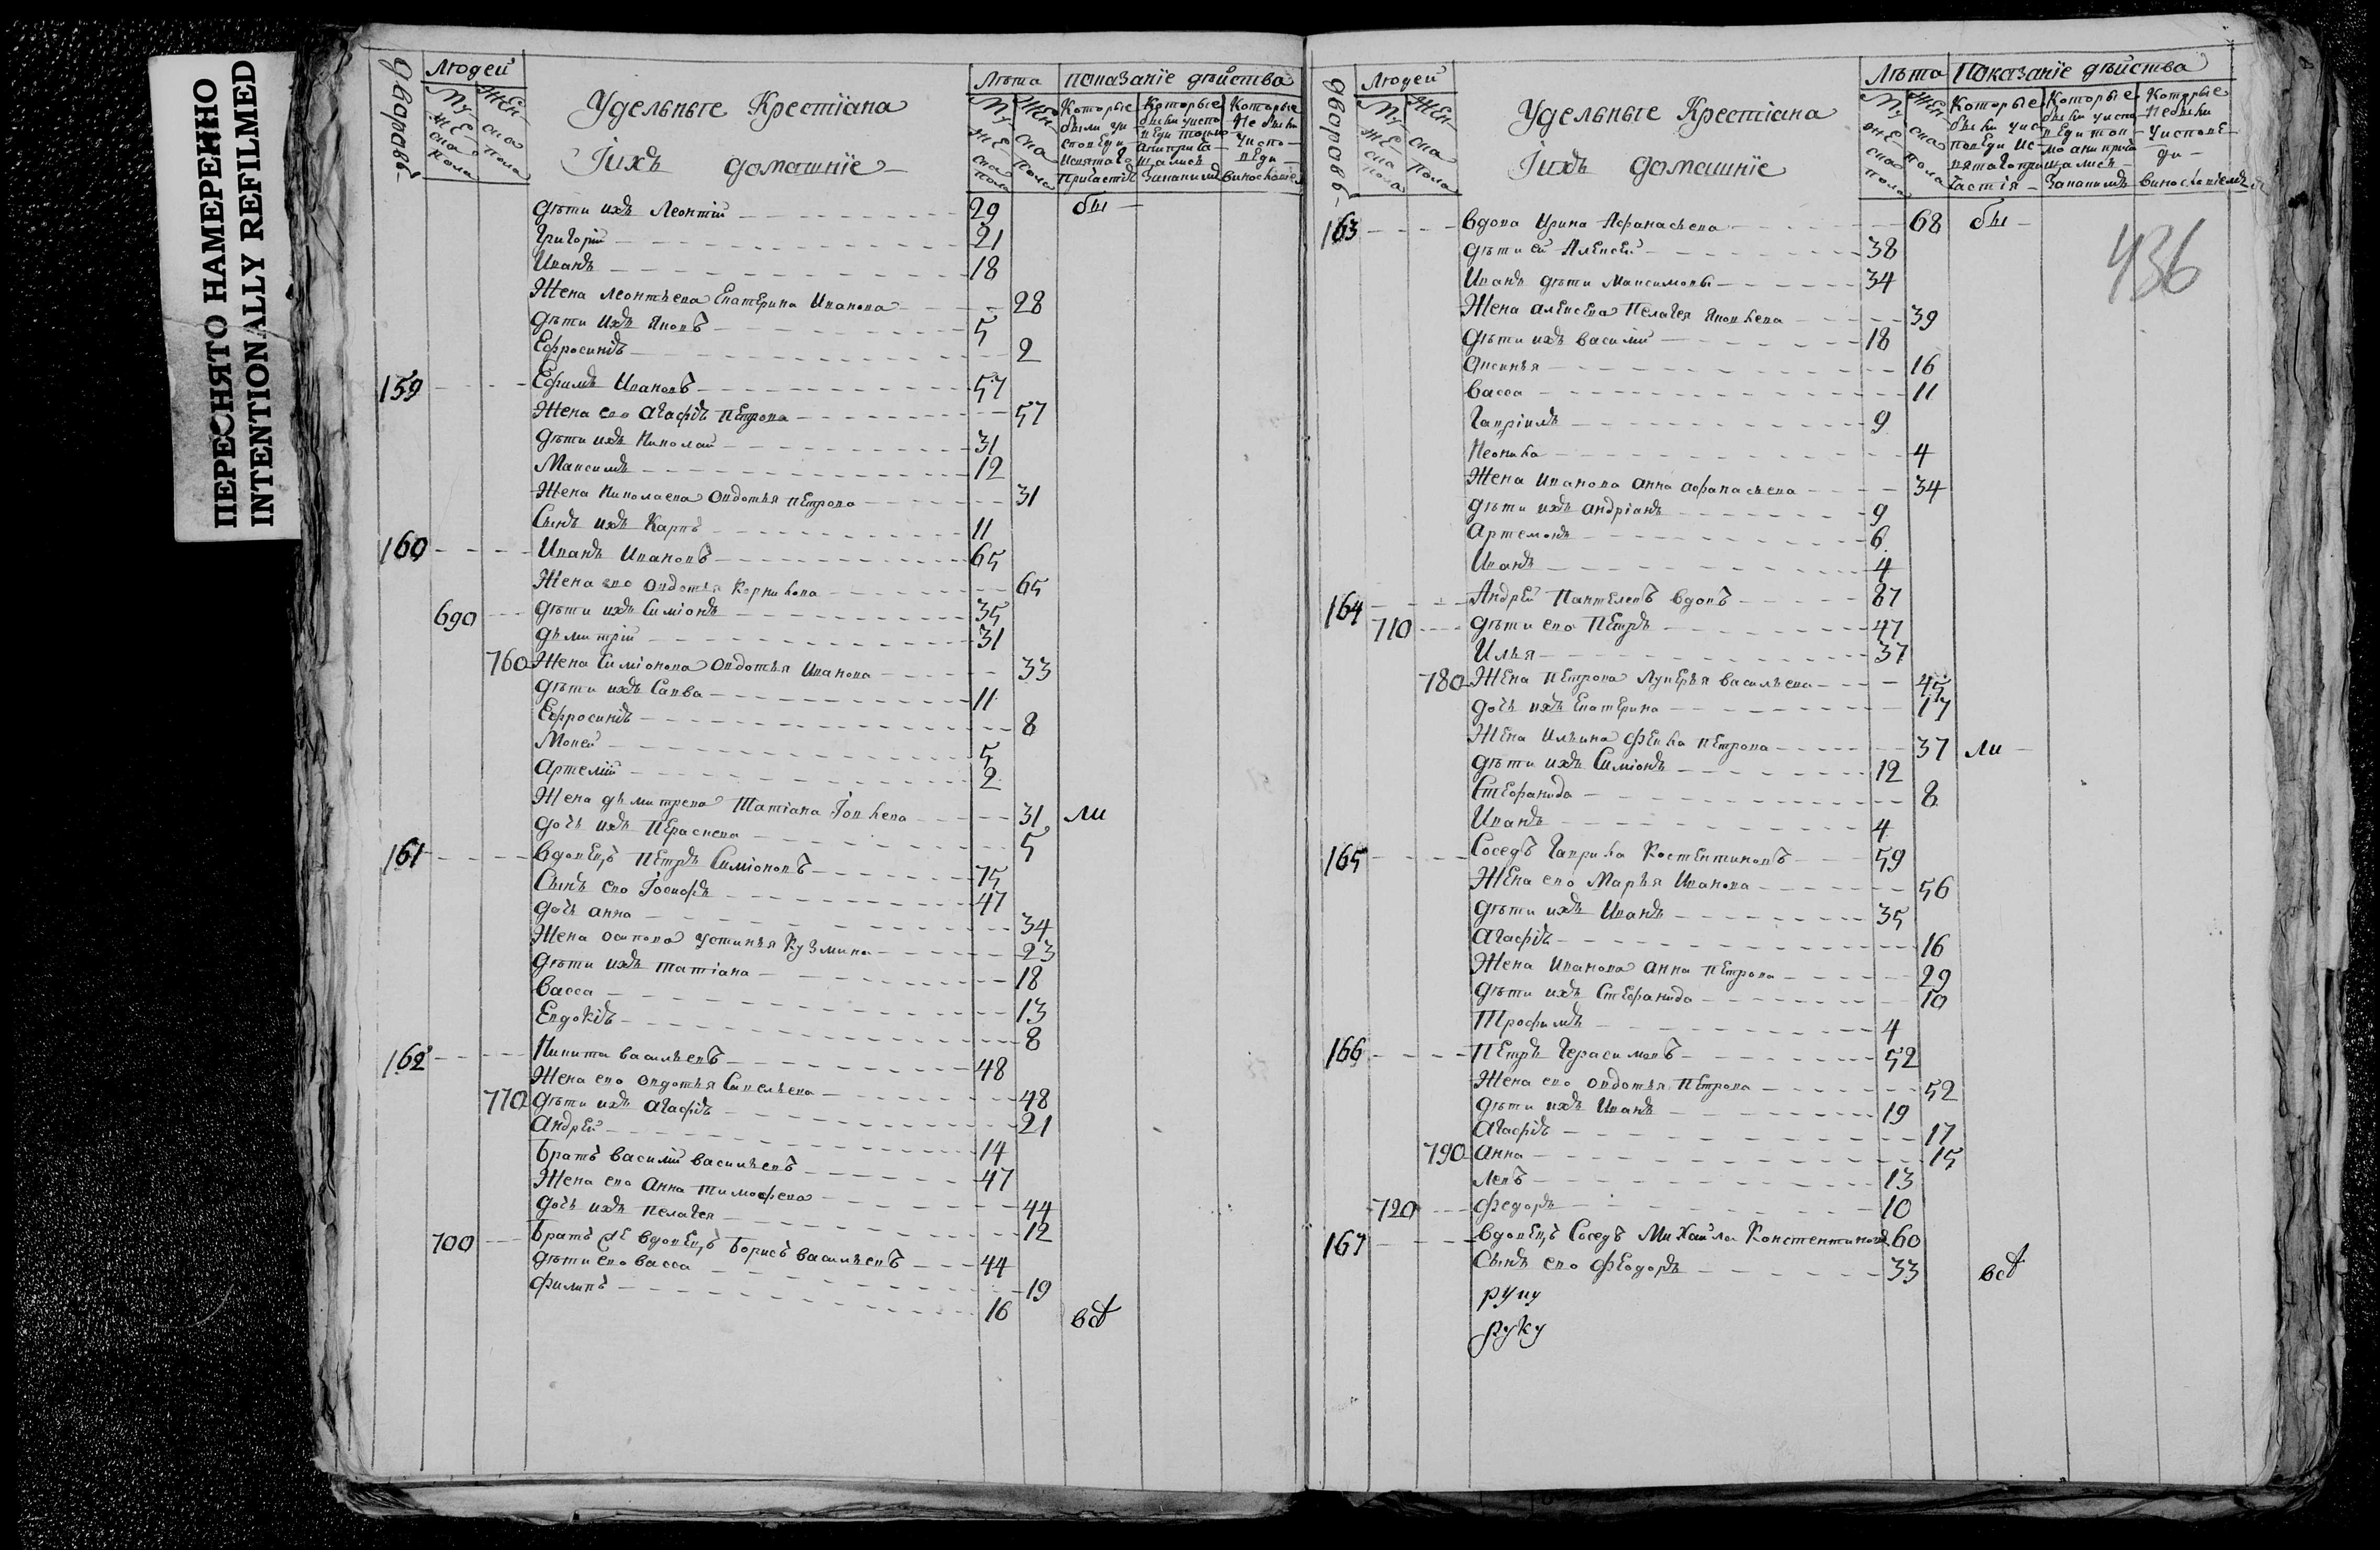 ПЕРЕСНЯТО НАМЕРЕННО
INTENTIONALLY REFILMED
дворовъ
Людей
Мужеска пола
Женска пола
Удельныге Крестіана
Іихъ домашніе
Лѣта
Мужеска пола
Женска пола
показаніе дѣйства
Которые были уисповеди исвятаго причастія
Которые были уисповеди токмо анипричащались
Которые Не были уисповеди
дѣти ихъ Леонтій 29 бы
Григорій 21
Иванъ 18
Жена леонтьева Екатерина Иванова 28
дѣти ихъ Яковъ 5
Ефросинія 2
159 Ефимъ Ивановъ 57
Жена ево агафія петрова 57
дѣти ихъ Николай 31
Максимъ 12
Жена Николаева овдотья петрова 31
Сынъ ихъ Карпъ 11
160 Иванъ Ивановъ 65
Жена ево овдотья Корнилова 65
690 дѣти ихъ Симіонъ 35
дьмитрій 31
760 Жена Симіонова овдотья Иванова 33
дѣти ихъ Савва 11
Ефросинія 8
Мокей 5
артемій 2
Жена дьмитрева Татіана Іовлева 31 ли
дочь ихъ перасковя 5
161 вдовецъ петръ Симіоновъ 75
Сынъ ево Іосифъ 47
дочь анна 34
Жена осипова устинья Кузмина 23
дѣти ихъ татіана 18
васса 13
Евдокія 8
162 Никита васильевъ 48
Жена ево овдотья Савельева 48
770 дѣти ихъ агафія 21
андрей 14
братъ василій васильевъ 47
Жена ево анна тимофева 44
дочь ихъ пелагея 12
700 братъ же вдовецъ борисъ васильевъ 44
дѣти ево васса 19
филипъ 16 всѣ
дворовъ
Людей
Мужеска пола
Женска пола
Удельныге Крестіана
Іихъ домашніе
Лѣта
Мужеска пола
Женска пола
Показаніе дѣйства
436
163 вдова Ирина Афанасьева 68 бы
дѣти ей Алексей 38
Иванъ дѣти Максимовы 34
Жена алексева пелагея Яковлева 39
дѣти ихъ василій 18
аксинья 16
васса 11
гавріилъ 9
Неонила 4
Жена Иванова анна афанасьева 34
дѣти ихъ андріанъ 9
артемонъ 6
Иванъ 4
164 Андрей Пантелевъ вдовъ 87
710 дѣти ево петръ 47
Илья 37
780 Жена петрова Лукерья васильева 45
дочь ихъ Екатерина 17
Жена Ильина фекла петрова 37 ли
дѣти ихъ Симіонъ 12
Стефанида 8
Иванъ 4
165 Соседъ гаврила Костентиновъ 59
Жена ево Марья Иванова 56
дѣти ихъ Иванъ 35
агафія 16
Жена Иванова анна петрова 29
дѣти ихъ Стефанида 10
Трофимъ 4
166 петръ герасимовъ 52
Жена ево овдотья петрова 52
дѣти ихъ Иванъ 19
агафія 17
790 анна 15
левъ 13
720 федоръ 10
167 вдовецъ Соседъ Михайла Констентиновъ 60
Сынъ ево феодоръ 33 всѣ
руку
руку